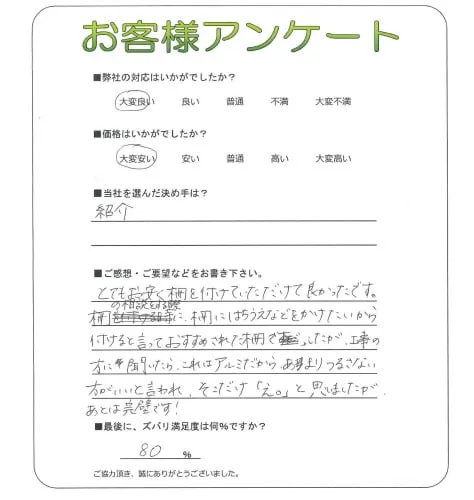 お客様アンケート
■弊社の対応はいかがでしたか？
大変良い 良い 普通 不満 大変不満
■価格はいかがでしたか？
大変安い 安い 普通 高い 大変高い
■当社を選んだ決め手は？
紹介
■ご感想・ご要望などをお書き下さい。
とてもお安く柵を付けていただけて良かったです。
の相談をする際
柵に、柵にはちうえなどをかけたいから
付けると言っておすすめされた柵でしたが、工事の
方に聞いたら、これはアルミだから、あまりつるさない
方がいいと言われ、そこだけ「え。」と思いましたが、
あとは完璧です！
■最後に、ズバリ満足度は何％ですか？
80 ％
ご協力頂き、誠にありがとうございました。